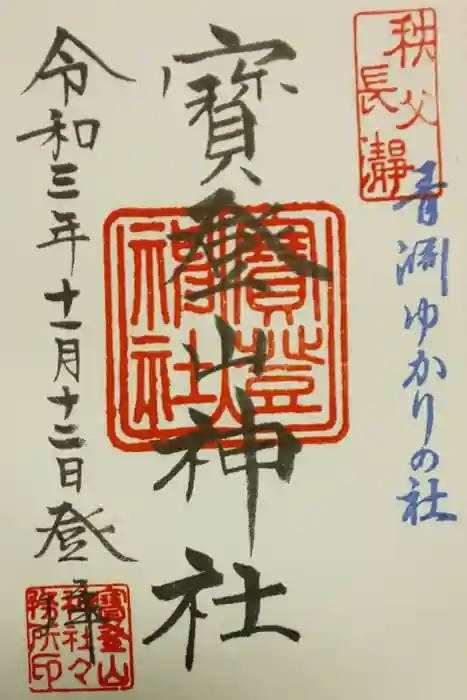 秩父
長瀞
青淵ゆかりの社
寳登山神社
寳登山
神社
令和三年十一月十二日登拝
寳登山
神社々
務所印